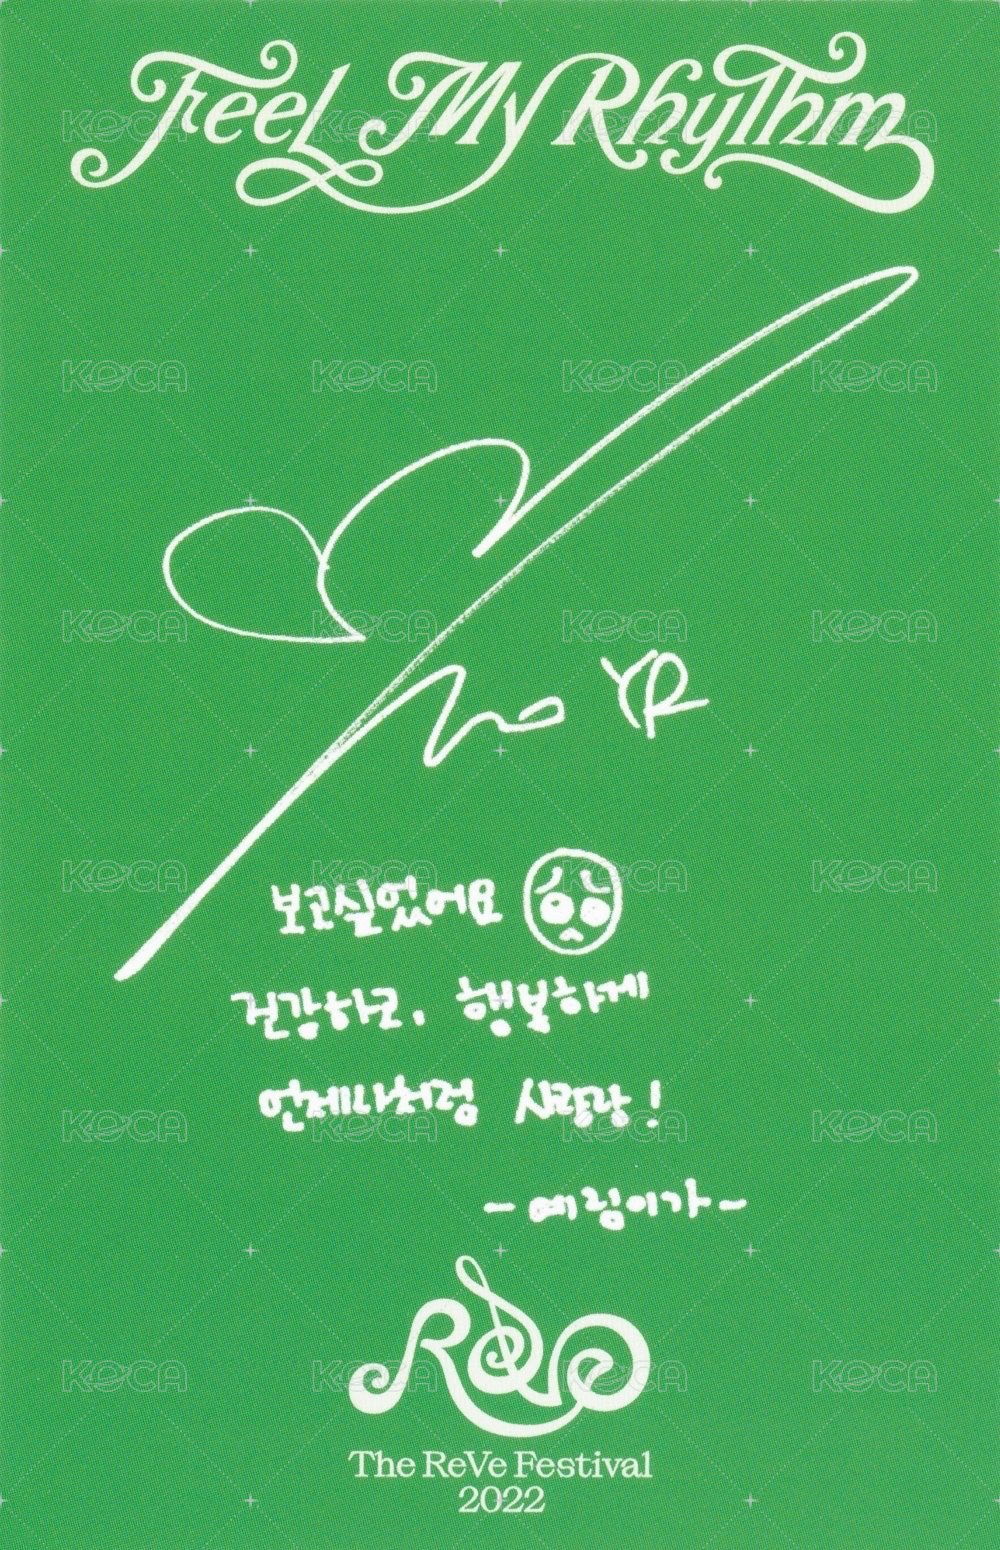 Feel My Rhythm
YR
보고싶었어요
건강하고, 행복하게
언제나처럼 사랑랑!
-예림이가-
ReVe
The ReVe Festival
2022
KCA